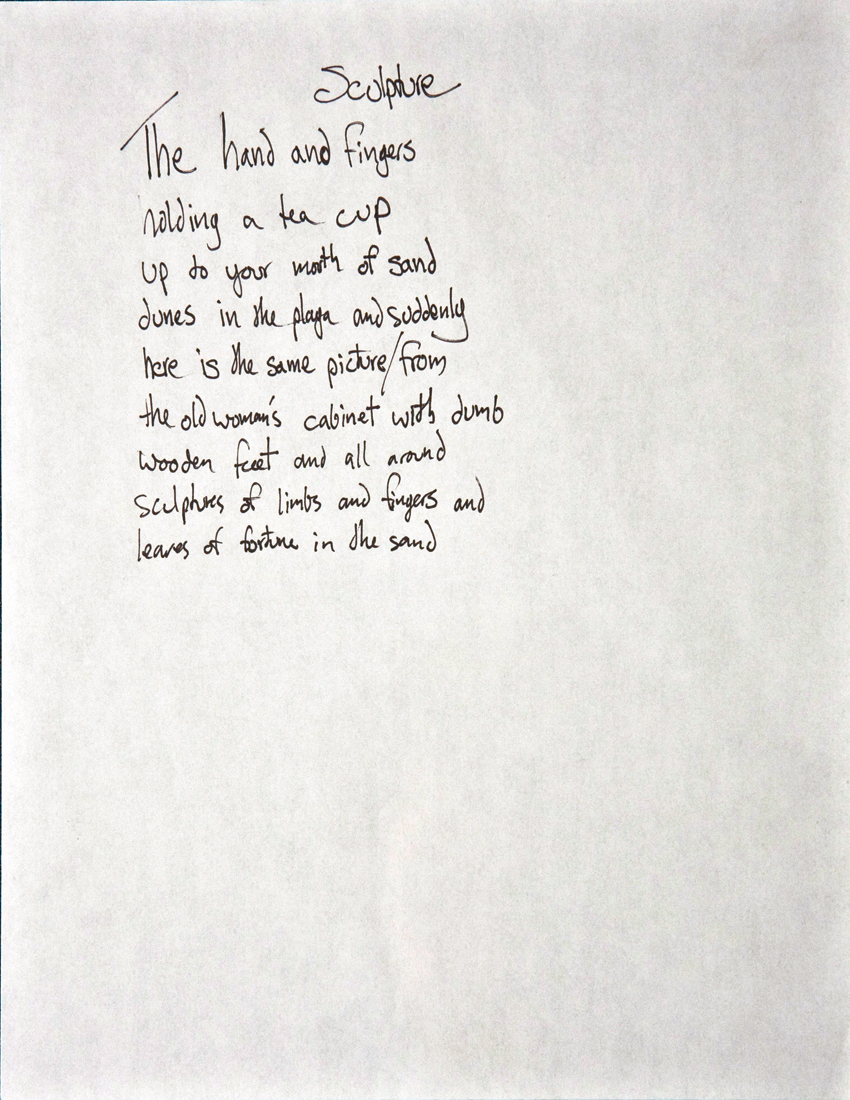 Sculpture
The hand and fingers
holding a tea cup
up to your mouth of sand
dunes in the playa and suddenly
here is the same picture/from
the old woman's cabinet with dumb
wooden feet and all around
sculptures of limbs and fingers and
leaves of fortune in the sand